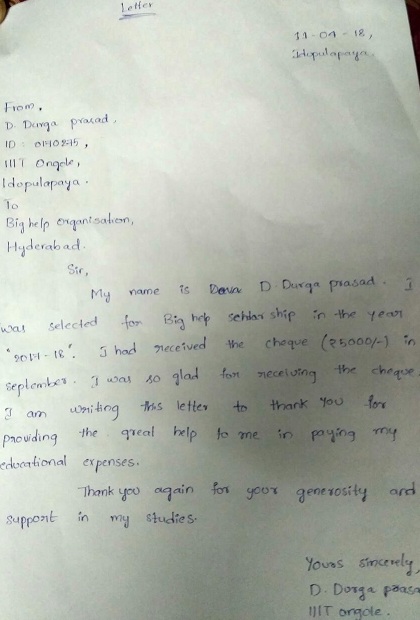 Letter
11-04-18,
Idopulapaya.
From,
D. Durga prasad,
IIIT Ongole,
Idopulapaya.
To
Big help organisation,
Hyderabad.
Sir,
My name is D. Durga prasad. I
was selected for Big help schlar ship in the year
I had received the cheque (₹5000/-) in
september. I was so glad for receiving the cheque.
I am writing this letter to thank you for
providing the great help to me in paying my
educational expenses.
Thank you again for your generosity and
support in my studies.
Yours sincerely,
D. Durga prasa
IIIT ongole.